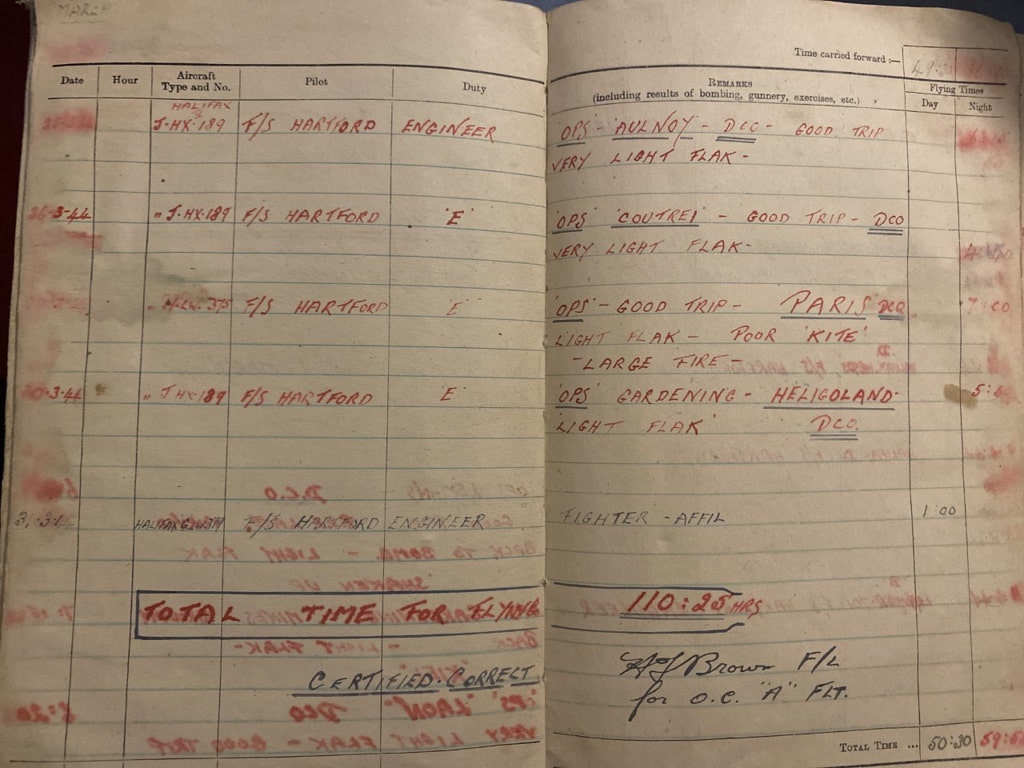 MARCH
Time carried forward :—
Date Hour Aircraft Type and No. Pilot Duty
REMARKS (including results of bombing, gunnery, exercises, etc.)
Flying Times
Day Night
HALIFAX
J-HX-189 F/S HARTFORD ENGINEER 'OPS' - AULNOY - DCO - GOOD TRIP
VERY LIGHT FLAK -
-3-44 " J-HX-189 F/S HARTFORD 'E' 'OPS' 'COUTREI' - GOOD TRIP - DCO
VERY LIGHT FLAK -
" F/S HARTFORD 'E' 'OPS' - GOOD TRIP - PARIS DCO 7:00
LIGHT FLAK - POOR 'KITE'
- LARGE FIRE -
-3-44 " J HX 189 F/S HARTFORD 'E' 'OPS' GARDENING - HELIGOLAND -
'LIGHT FLAK' DCO.
HALIFAX F/S HARTFORD ENGINEER FIGHTER - AFFIL 1:00
TOTAL TIME FOR FLYING 110:25 HRS
CERTIFIED. CORRECT. Brown F/L
for O.C. "A" FLT.
TOTAL TIME ... 50:30